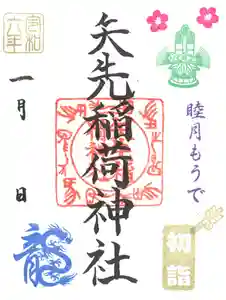 令和
六年
一月　日
矢先稲荷神社
睦月もうで
初詣
龍